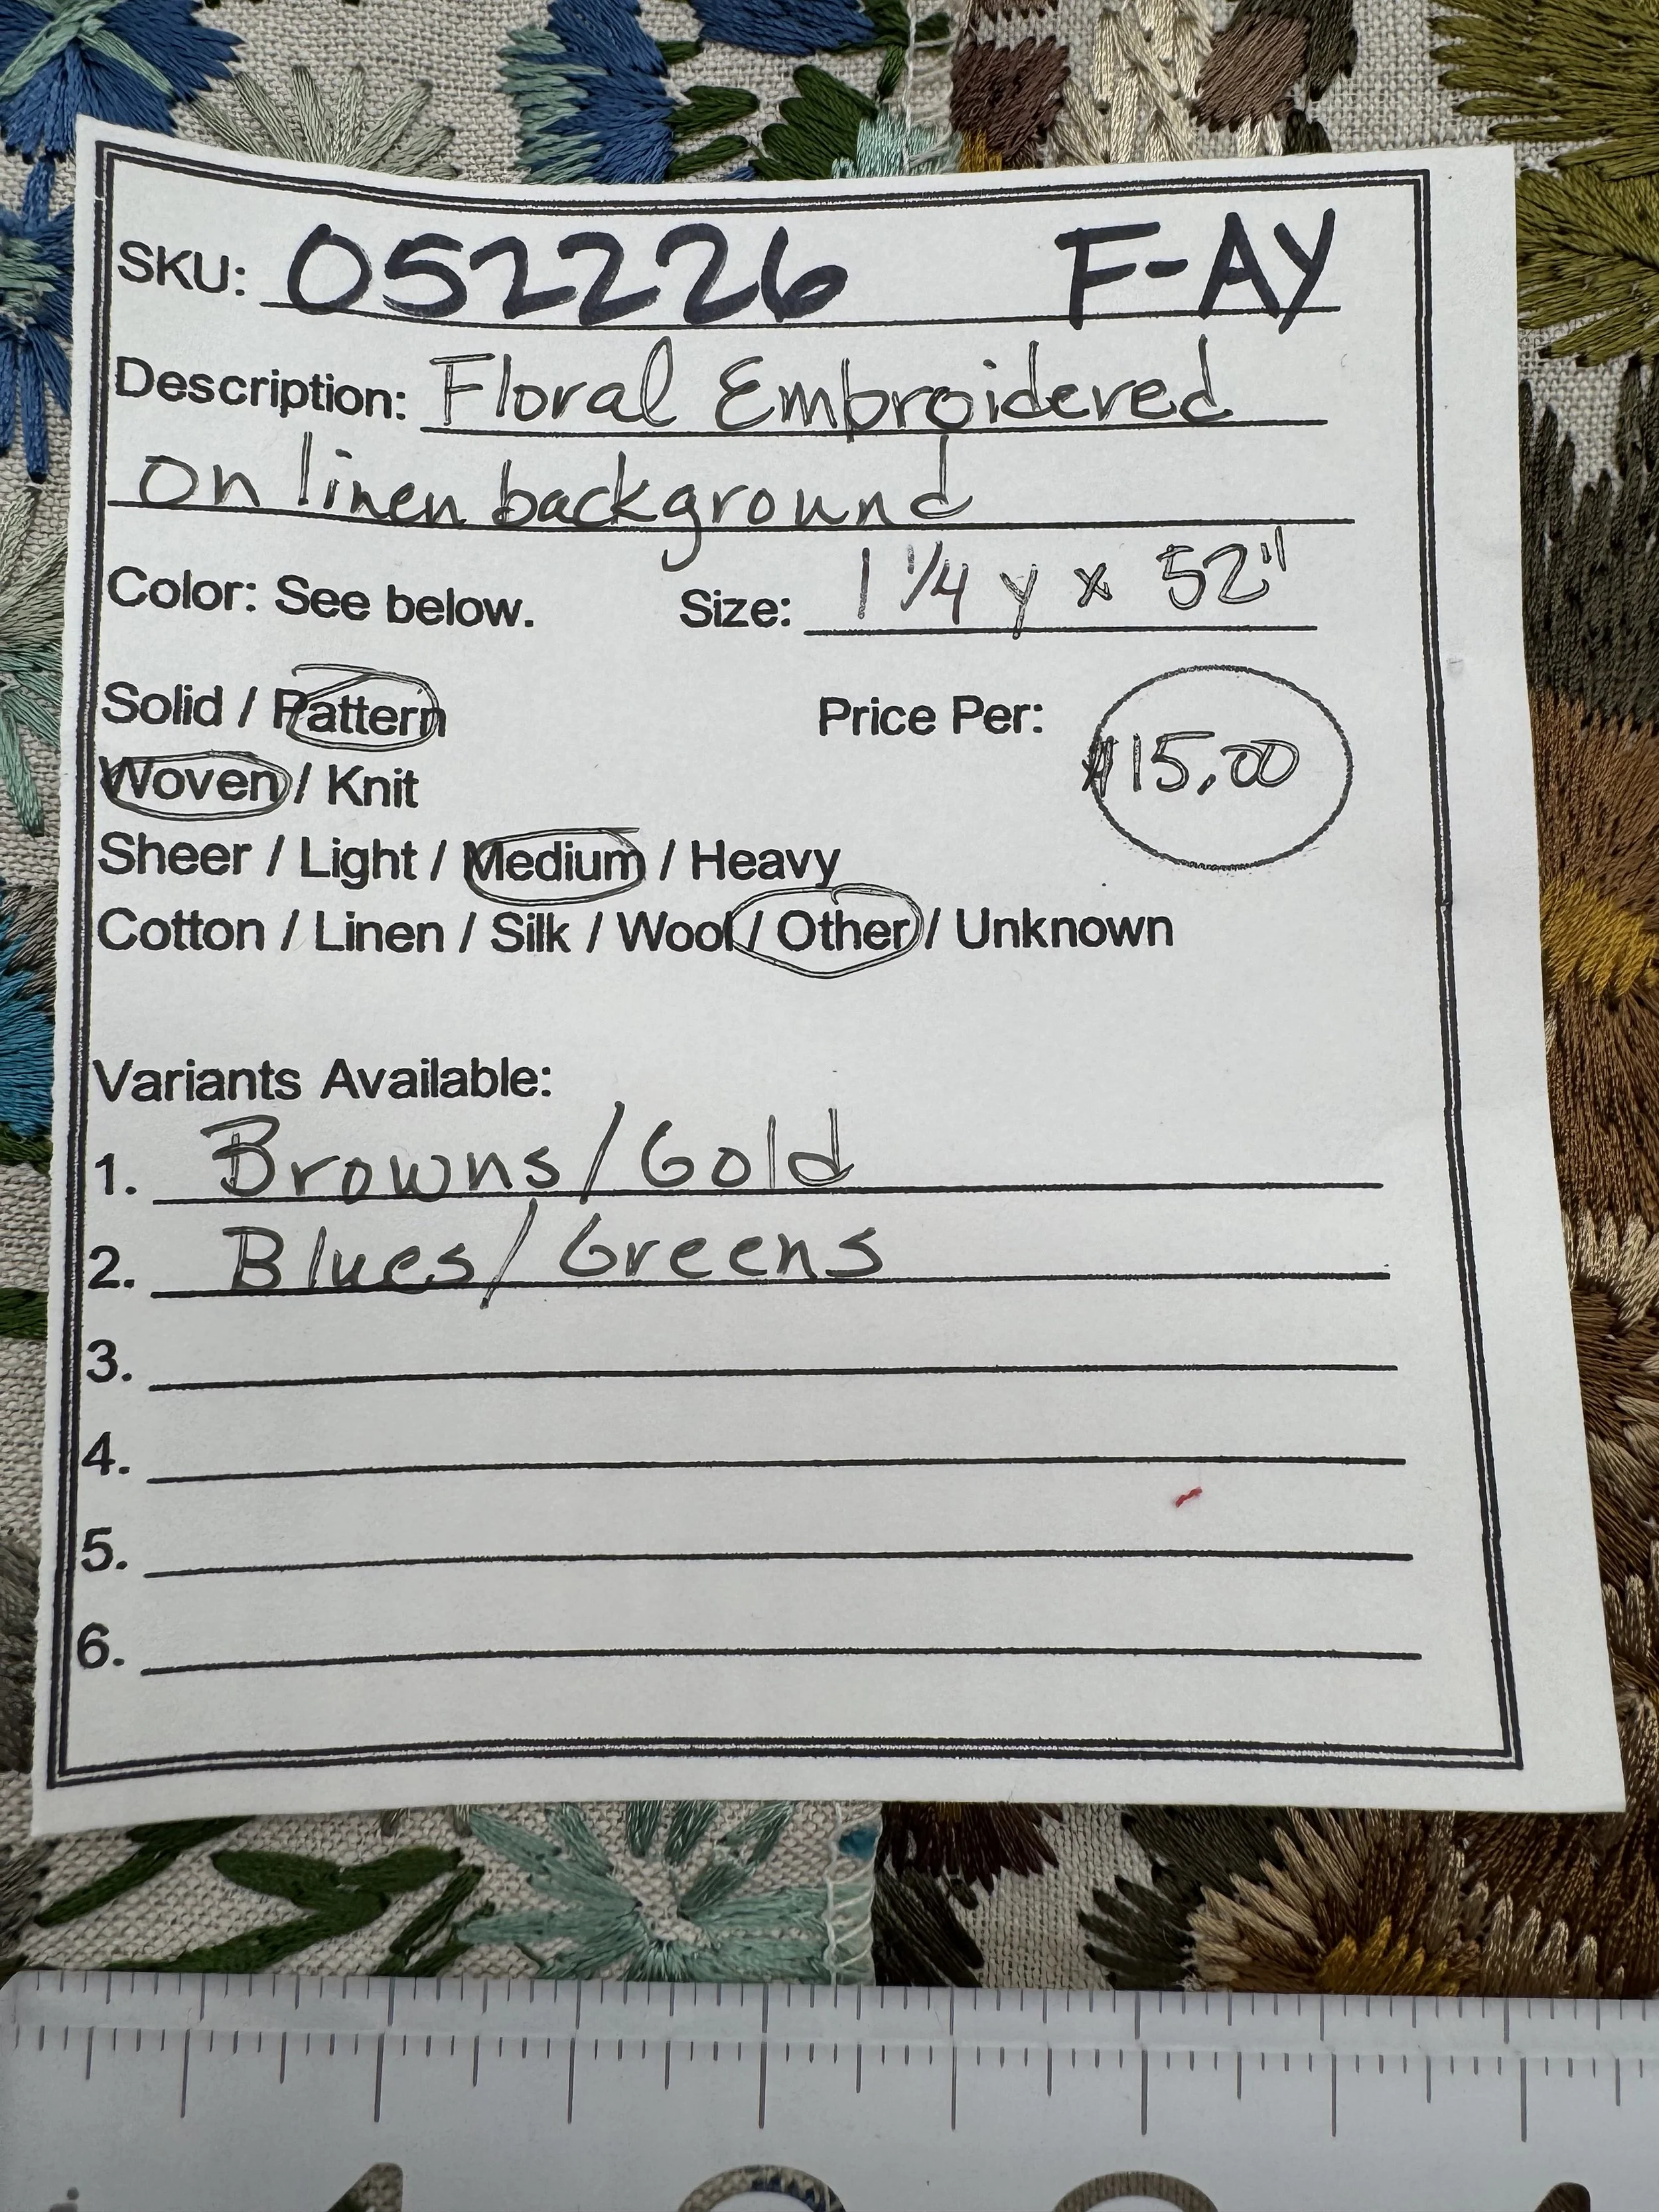 SKU: 052226 F-AY
Description: Floral Embroidered
on linen background
Color: See below. Size: 1 1/4 y x 52"
Solid / Pattern Price Per: $15.00
Woven / Knit
Sheer / Light / Medium / Heavy
Cotton / Linen / Silk / Wool / Other / Unknown
Variants Available:
1. Browns/Gold
2. Blues/Greens
3.
4.
5.
6.